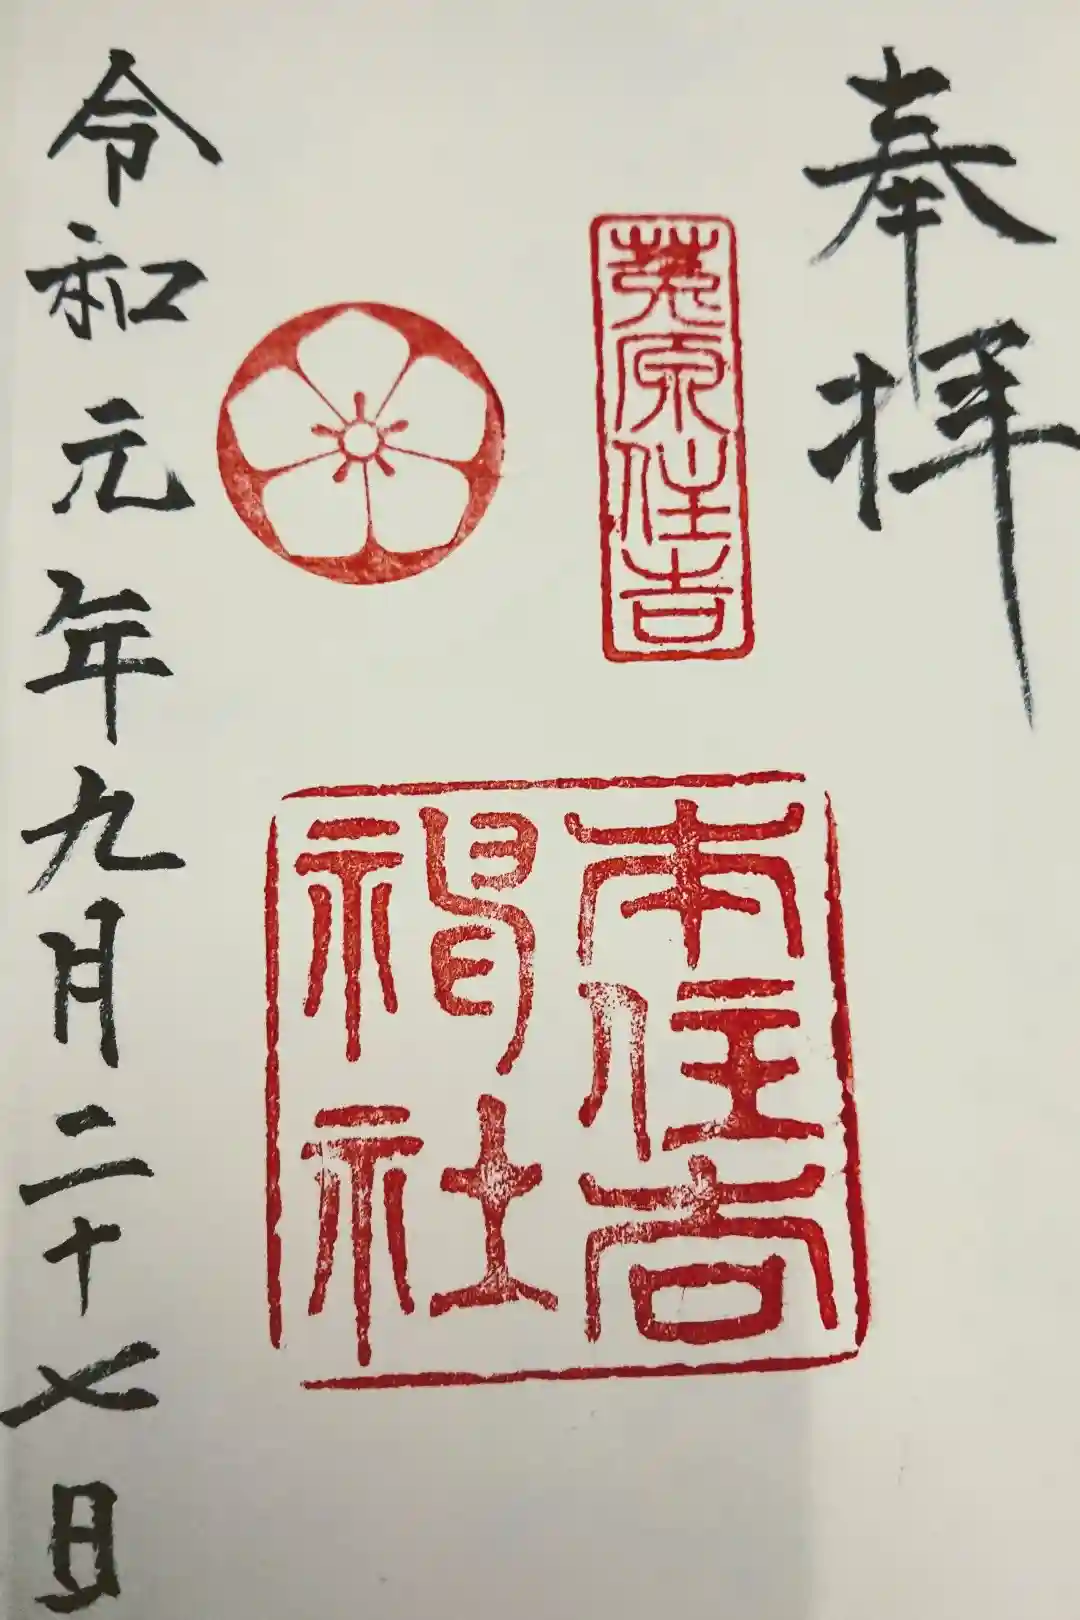 奉拝
菟原住吉
本住吉
神社
令和元年九月二十七日